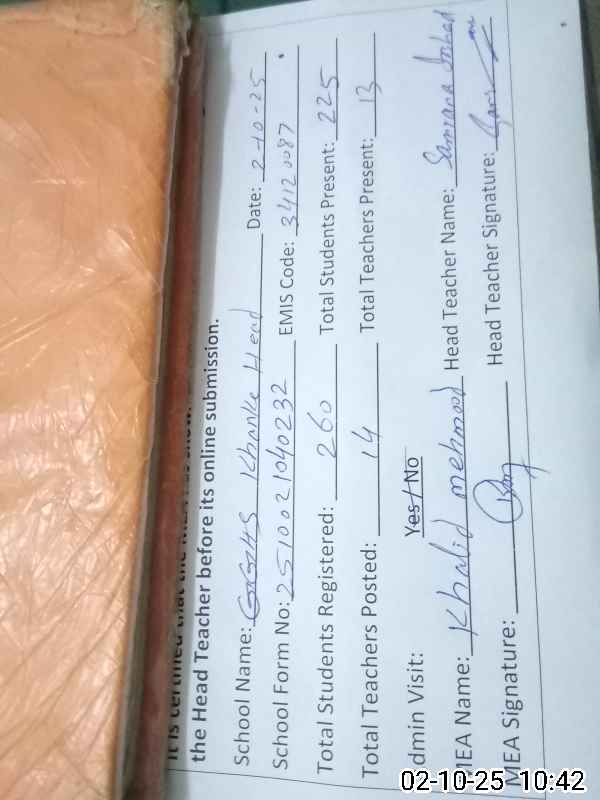 It is certified that the MEA
the Head Teacher before its online submission.
School Name: GGHS Khanke Head Date: 2-10-25
School Form No: 2510021040232 EMIS Code: 34120087
Total Students Registered: 260 Total Students Present: 225
Total Teachers Posted: 14 Total Teachers Present: 13
dmin Visit: Yes/No
MEA Name: Khalid mehmood Head Teacher Name: Samara
MEA Signature: Head Teacher Signature:
02-10-25 10:42